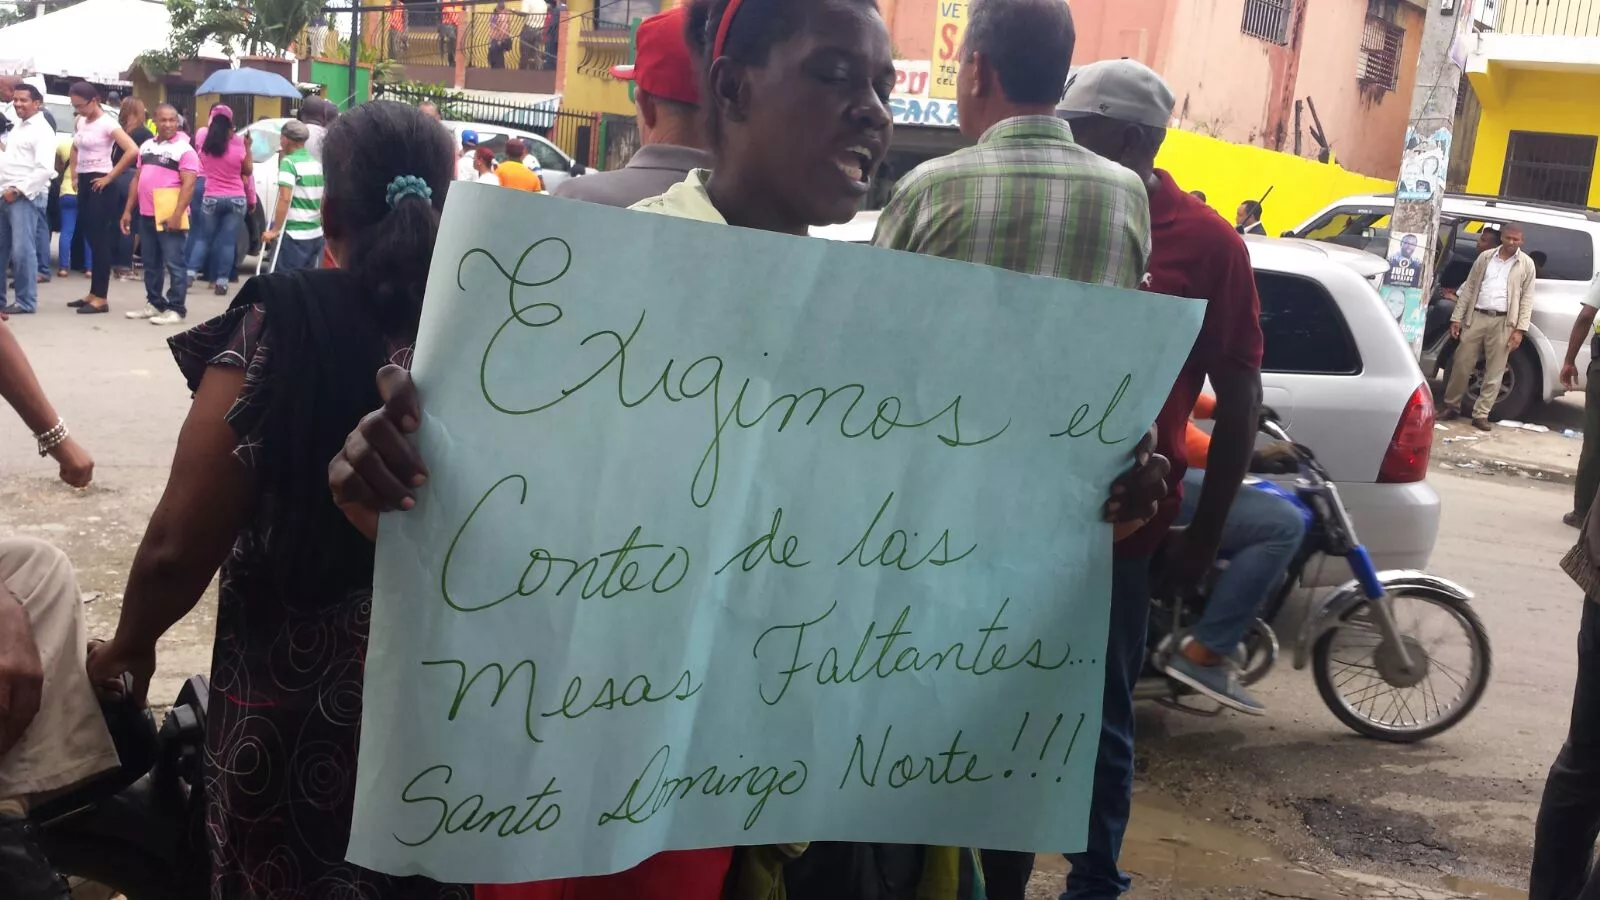 VET
SA
TEL
CEL
SARA
JULIO
Exigimos el
Conteo de las
Mesas Faltantes...
Santo Domingo Norte!!!